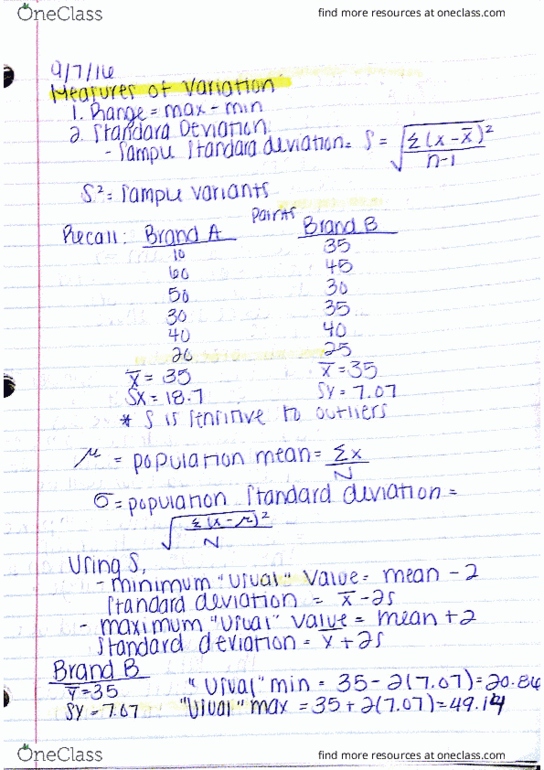 OneClass
find more resources at oneclass.com
9/7/16
Measures of Variation
1. Range = max - min
2. Standard Deviation
- Sample Standard deviation = S = √(Σ(x-x̄)²/n-1)
S² = Sample variants
Paints
Recall: Brand A Brand B
10 35
60 45
50 30
30 35
40 40
20 25
x̄ = 35 x̄ = 35
Sx = 18.7 Sy = 7.07
* S is sensitive to outliers
μ = population mean = Σx/N
σ = population Standard deviation =
√(Σ(x-μ)²/N)
Using S,
- minimum "Usual" Value = mean - 2
Standard deviation = x̄ - 2s
- maximum "usual" value = mean + 2
Standard deviation = x̄ + 2s
Brand B
ȳ = 35 "Usual" min = 35 - 2(7.07) = 20.86
Sy = 7.07 "Usual" max = 35 + 2(7.07) = 49.14
OneClass
find more resources at oneclass.com